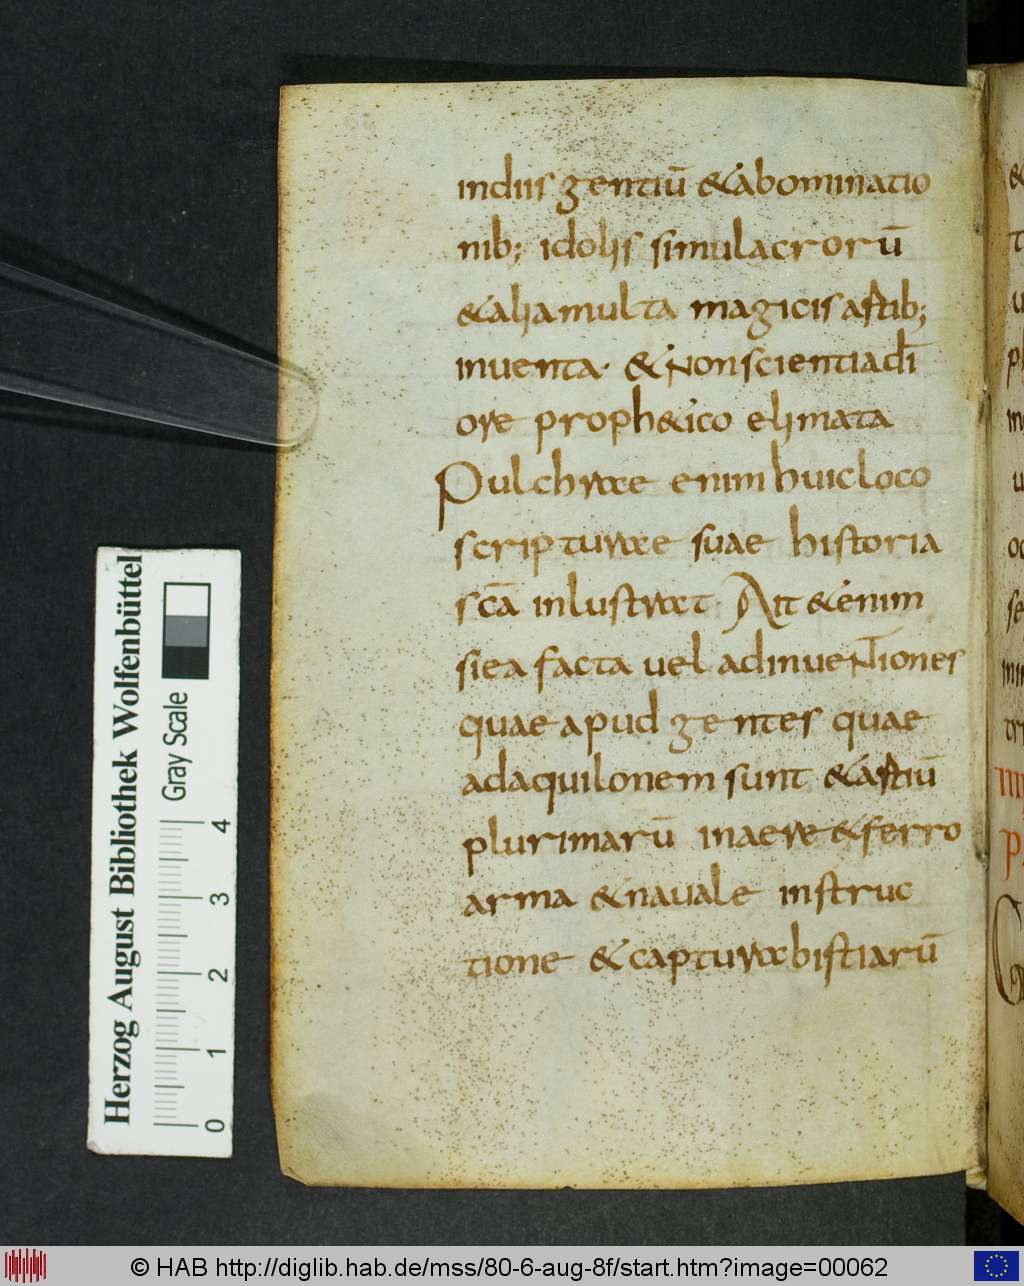 indiis gentiū &abominatio
nib; idolis simulacrorū
&aliamulta magicis astib;
inuenta· & nonscientiadī
ore proph&ico elimata
Pulchrae enim huicloco
scripturae suae historia
scā inlustrat Ait &enim
siea facta uel adinuentiones
quae apud gentes quae
adaquilonem sunt &astiū
plurimarū inaere &ferro
arma &nauale instruc
tione &capturabistiarū
Herzog August Bibliothek Wolfenbüttel
Gray Scale
0 1 2 3 4
© HAB http://diglib.hab.de/mss/80-6-aug-8f/start.htm?image=00062